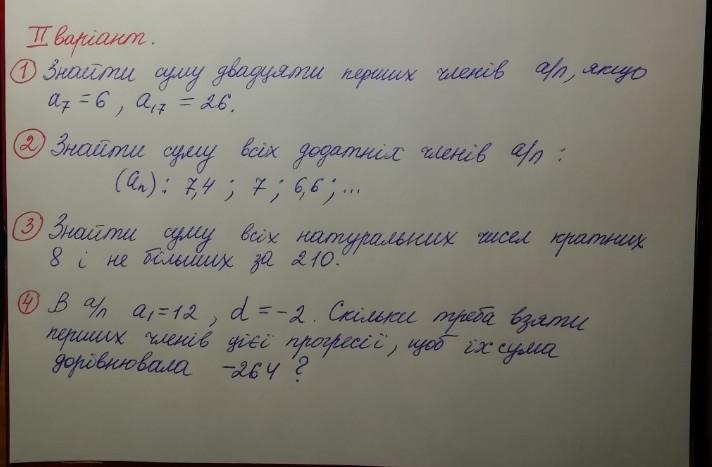 II варіант.
① Знайти суму двадцяти перших членів а/п, якщо
a₇ = 6 , a₁₇ = 26.
② Знайти суму всіх додатніх членів а/п :
(aₙ) : 7,4 ; 7 ; 6,6 ; ...
③ Знайти суму всіх натуральних чисел кратних
8 і не більших за 210.
④ В а/п a₁ = 12 , d = -2 . Скільки треба взяти
перших членів цієї прогресії, щоб їх сума
дорівнювала -264 ?